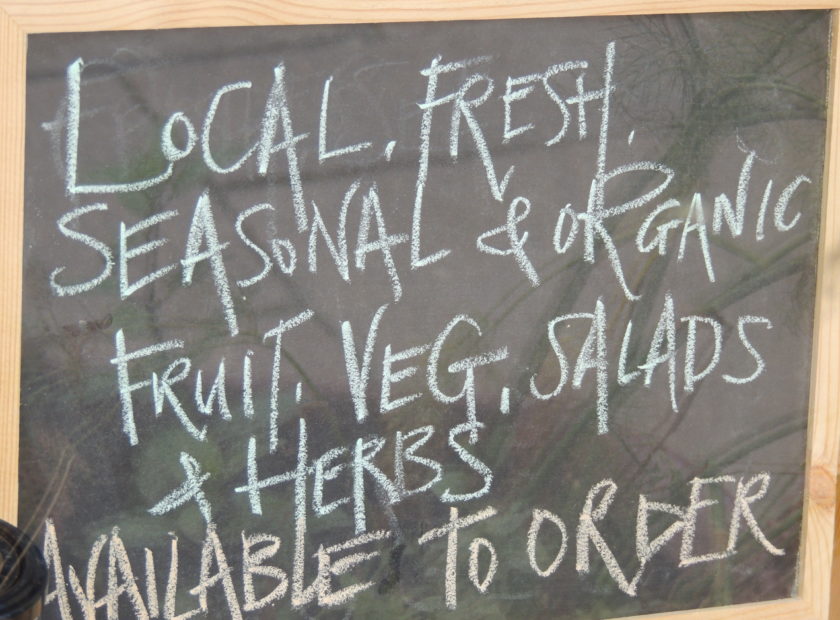 LOCAL. FRESH.
SEASONAL & ORGANIC
FRUIT. VEG. SALADS
+ HERBS
AVAILABLE TO ORDER